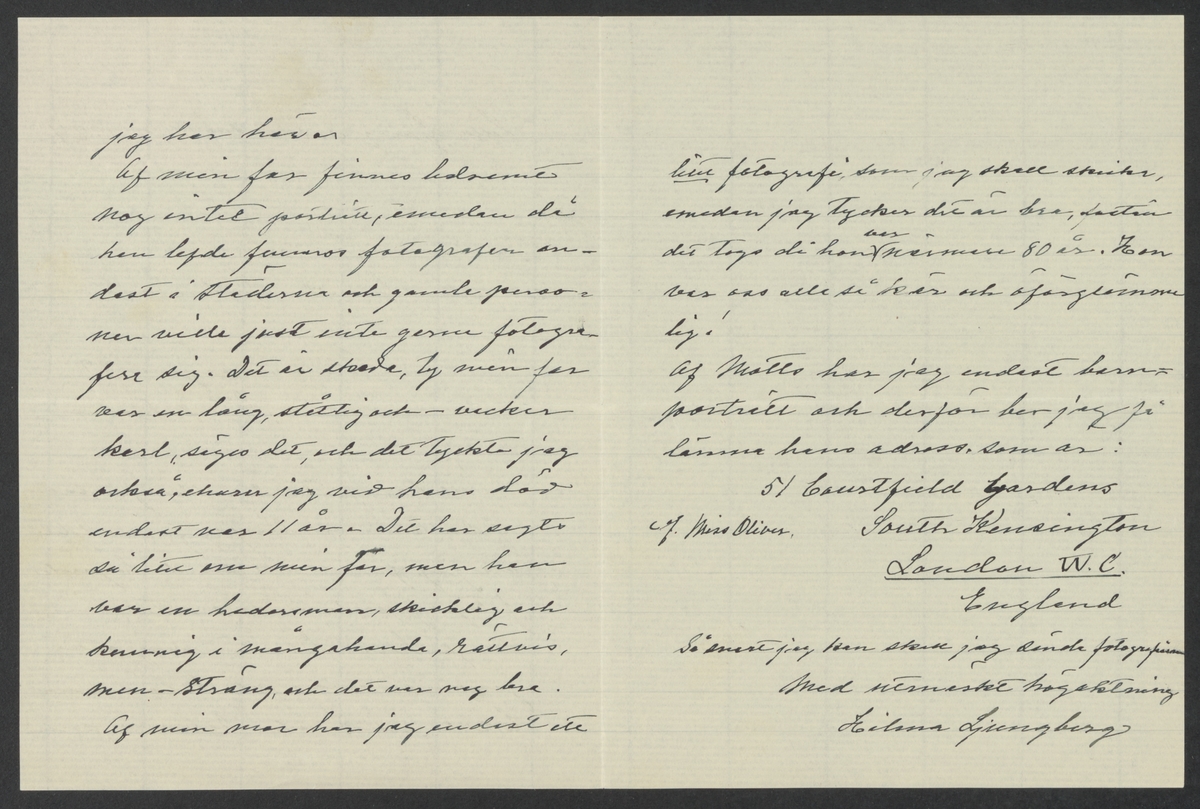 jag har här
Af min far finnes ledsamt
nog intet porträtt, emedan då
han lefde funnos fotografer en-
dast i städerna och gamla perso-
ner ville just inte gerna fotogra-
fera sig. Det är skada, ty min far
var en lång, ståtlig och – vacker
karl, säges det, och det tyckte jag
också, ehuru jag vid hans död
endast var 11 år. Det har sagts
så litet om min far, men han
var en hedersman, skicklig och
kunnig i mångahanda, rättvis,
men – sträng, och det var nog bra.
Af min mor har jag endast ett
litet fotografi, som jag skall skicka,
emedan jag tycker det är bra, fastän
det togs då hon var närmare 80 år. Hon
var oss alla så kär och oförglömme
lig!
Af Matts har jag endast barn-
porträtt och derför ber jag få
lämna hans adress, som är:
51 Courtfield Gardens
c/. Miss Oliver. South Kensington
London W.C.
England
Så snart jag kan skall jag sända fotografierna
Med utmärkt högaktning
Hilma Ljungberg